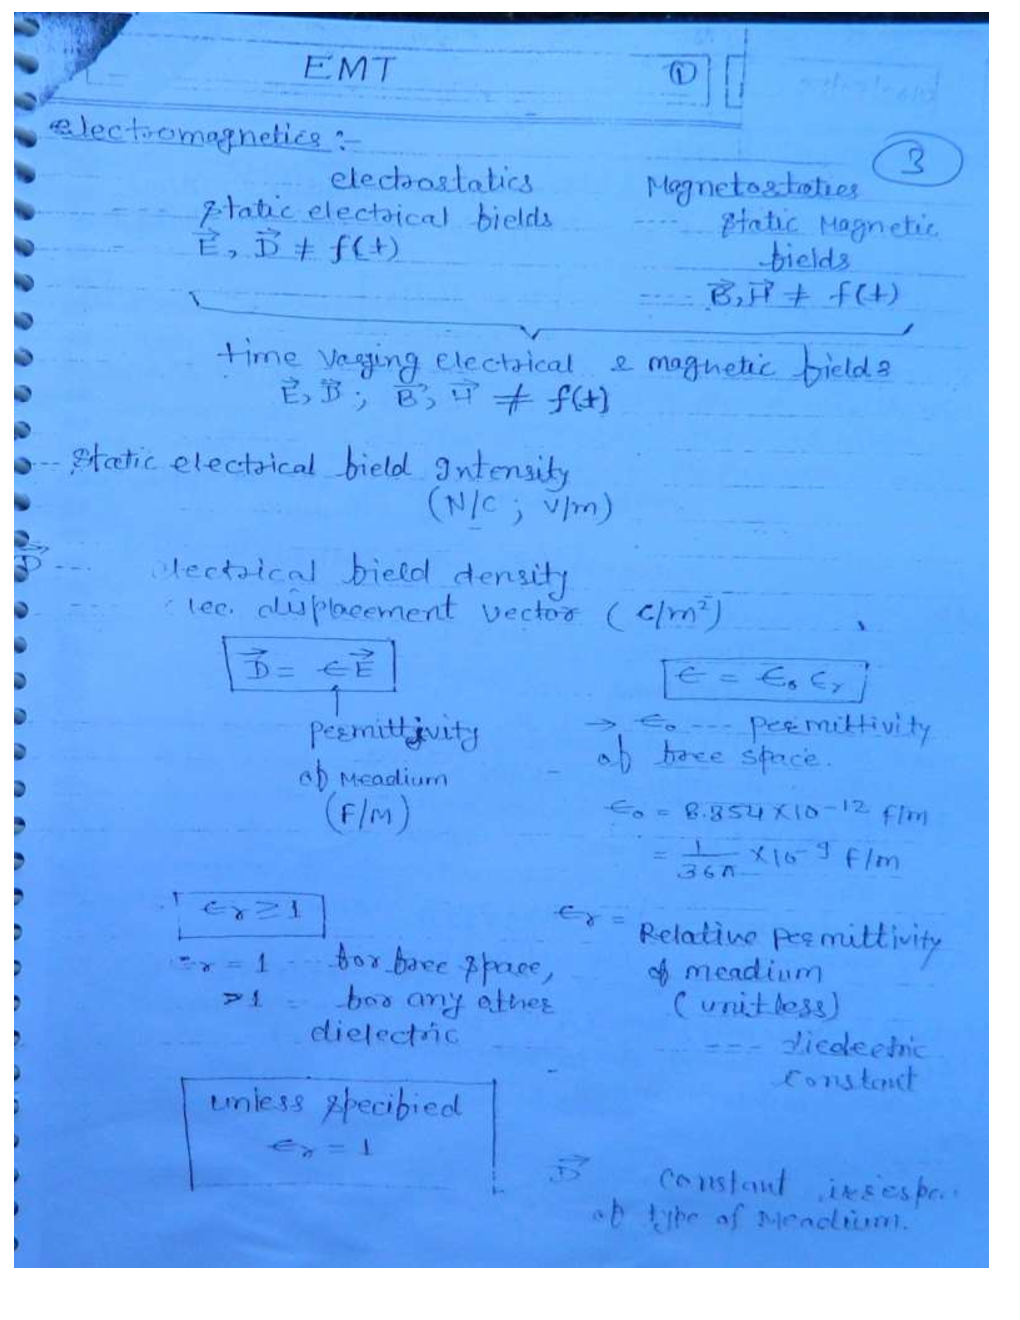 EMT ①
electromagnetics :-
3
electrostatics
static electrical fields
E⃗, D⃗ ≠ f(t)
Magnetostatics
---- static Magnetic
fields
---- B⃗, H⃗ ≠ f(t)
time varying electrical & magnetic fields
E⃗, D⃗ ; B⃗, H⃗ ≠ f(t)
--- static electrical field Intensity
(N/C ; V/m)
D⃗ --- lectrical field density
lec. displacement vector (C/m²)
D⃗ = ∈E⃗
permittivity
of Meadium
(F/M)
∈ = ∈₀ ∈r
→ ∈₀ --- permittivity
of free space.
∈₀ = 8.854 × 10-12 F/m
= 1/36π × 10-9 F/m
∈r ≥ 1
∈r = 1 --- for free space,
>1 = for any other
dielectric
∈r = Relative permittivity
of meadium
(unitless)
---- dielectric
constant
unless specified
∈r = 1
D⃗ constant irrespe
of type of Meadium.